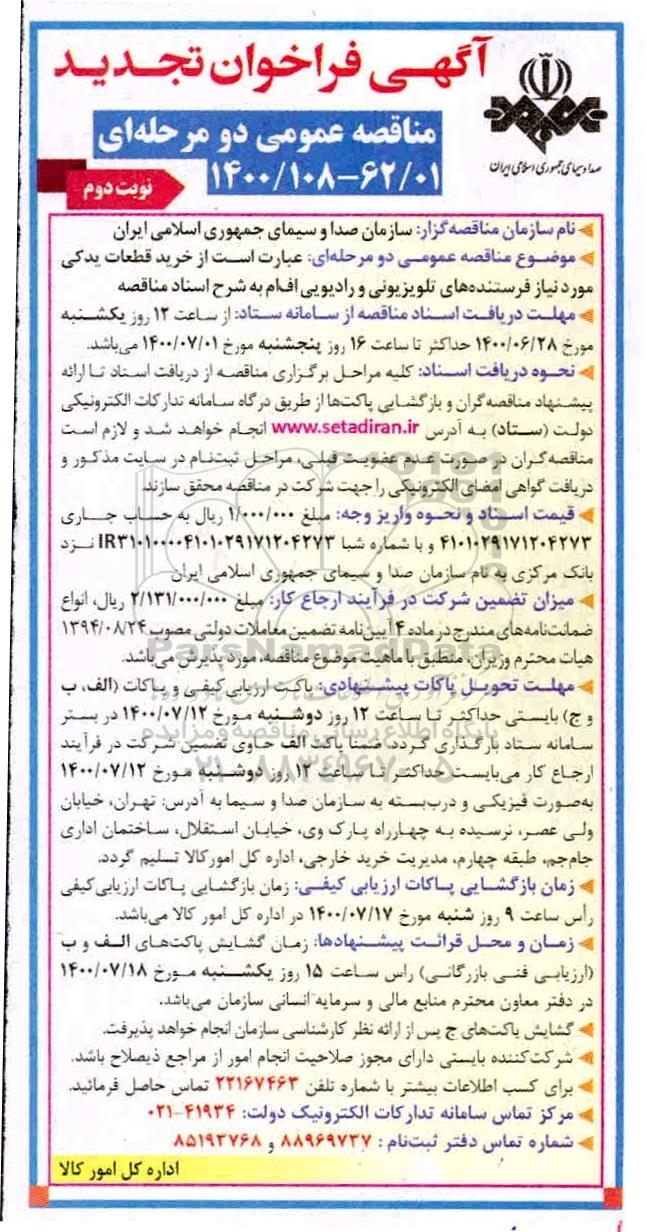 آگهی فراخوان تجدید
مناقصه عمومی دو مرحله‌ای
۱۴۰۰/۱۰۸-۶۲/۰۱
نوبت دوم
صدا و سیمای جمهوری اسلامی ایران
نام سازمان مناقصه‌گزار: سازمان صدا و سیمای جمهوری اسلامی ایران
موضوع مناقصه عمومی دو مرحله‌ای: عبارت است از خرید قطعات یدکی
مورد نیاز فرستنده‌های تلویزیونی و رادیویی اف‌ام به شرح اسناد مناقصه
مهلت دریافت اسناد مناقصه از سامانه ستاد: از ساعت ۱۲ روز یکشنبه
مورخ ۱۴۰۰/۰۶/۲۸ حداکثر تا ساعت ۱۶ روز پنجشنبه مورخ ۱۴۰۰/۰۷/۰۱ می‌باشد.
نحوه دریافت اسناد: کلیه مراحل برگزاری مناقصه از دریافت اسناد تا ارائه
پیشنهاد مناقصه‌گران و بازگشایی پاکت‌ها از طریق درگاه سامانه تدارکات الکترونیکی
دولت (ستاد) به آدرس www.setadiran.ir انجام خواهد شد و لازم است
مناقصه‌گران در صورت عدم عضویت قبلی، مراحل ثبت‌نام در سایت مذکور و
دریافت گواهی امضای الکترونیکی را جهت شرکت در مناقصه محقق سازند.
قیمت اسناد و نحوه واریز وجه: مبلغ ۱/۰۰۰/۰۰۰ ریال به حساب جاری
۴۱۰۱۰۲۹۱۷۱۲۰۴۲۷۳ و با شماره شبا IR۳۱۰۱۰۰۰۰۴۱۰۱۰۲۹۱۷۱۲۰۴۲۷۳ نزد
بانک مرکزی به نام سازمان صدا و سیمای جمهوری اسلامی ایران
میزان تضمین شرکت در فرآیند ارجاع کار: مبلغ ۲/۱۳۱/۰۰۰/۰۰۰ ریال، انواع
ضمانت‌نامه‌های مندرج در ماده ۴ آیین‌نامه تضمین معاملات دولتی مصوب ۱۳۹۴/۰۸/۲۴
هیات محترم وزیران، منطبق با ماهیت موضوع مناقصه، مورد پذیرش می‌باشد.
مهلت تحویل پاکات پیشنهادی: پاکت ارزیابی کیفی و پاکات (الف، ب
و ج) بایستی حداکثر تا ساعت ۱۲ روز دوشنبه مورخ ۱۴۰۰/۰۷/۱۲ در بستر
سامانه ستاد بارگذاری گردد. ضمنا پاکت الف حاوی تضمین شرکت در فرآیند
ارجاع کار می‌بایست حداکثر تا ساعت ۱۲ روز دوشنبه مورخ ۱۴۰۰/۰۷/۱۲
به‌صورت فیزیکی و درب‌بسته به سازمان صدا و سیما به آدرس: تهران، خیابان
ولی عصر، نرسیده به چهارراه پارک وی، خیابان استقلال، ساختمان اداری
جام‌جم، طبقه چهارم، مدیریت خرید خارجی، اداره کل امور کالا تسلیم گردد.
زمان بازگشایی پاکات ارزیابی کیفی: زمان بازگشایی پاکات ارزیابی کیفی
رأس ساعت ۹ روز شنبه مورخ ۱۴۰۰/۰۷/۱۷ در اداره کل امور کالا می‌باشد.
زمان و محل قرائت پیشنهادها: زمان گشایش پاکت‌های الف و ب
(ارزیابی فنی بازرگانی) راس ساعت ۱۵ روز یکشنبه مورخ ۱۴۰۰/۰۷/۱۸
در دفتر معاون محترم منابع مالی و سرمایه انسانی سازمان می‌باشد.
گشایش پاکت‌های ج پس از ارائه نظر کارشناسی سازمان انجام خواهد پذیرفت.
شرکت‌کننده بایستی دارای مجوز صلاحیت انجام امور از مراجع ذیصلاح باشد.
برای کسب اطلاعات بیشتر با شماره تلفن ۲۲۱۶۷۴۶۳ تماس حاصل فرمائید.
مرکز تماس سامانه تدارکات الکترونیک دولت: ۴۱۹۳۴-۰۲۱
شماره تماس دفتر ثبت‌نام : ۸۸۹۶۹۷۳۷ و ۸۵۱۹۳۷۶۸
اداره کل امور کالا
ParsNamadData
پایگاه اطلاع رسانی مناقصه و مزایده
۰۲۱-۸۸۳۴۹۶۷۰-۵